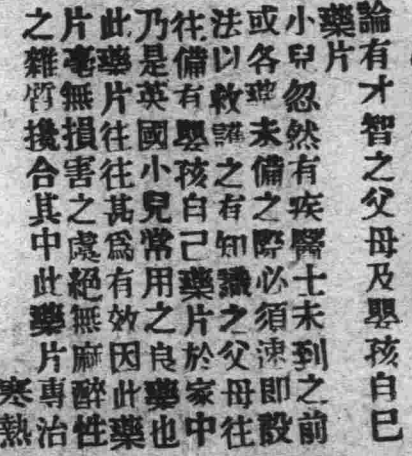 論有才智之父母及嬰孩自己
藥片
小兒忽然有疾醫士未到之前
或各未備之際必須速即設
法以救護之有知識之父母往
往備有嬰孩自己藥片於家中
乃是英國小兒常用之良藥也
此藥片往往甚爲有效因此藥
片毫無損害之處絕無麻醉性
之雜質攙合其中此藥片專治
寒熱